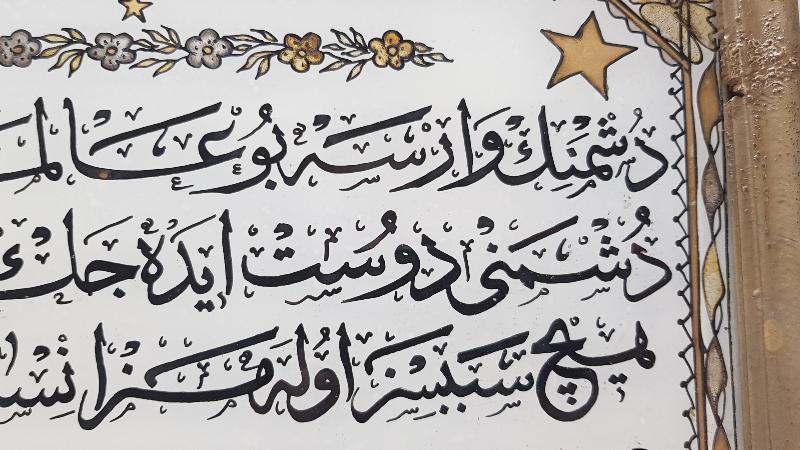 دُشْمَنِكْ وَارْسَه بُو عَالَمـ
دُشْمَنِى دُوسْتْ اِيدَه جَكْ
هِيچ سَبَبْسِزْ اُولَه مَزْ اِنْسـ